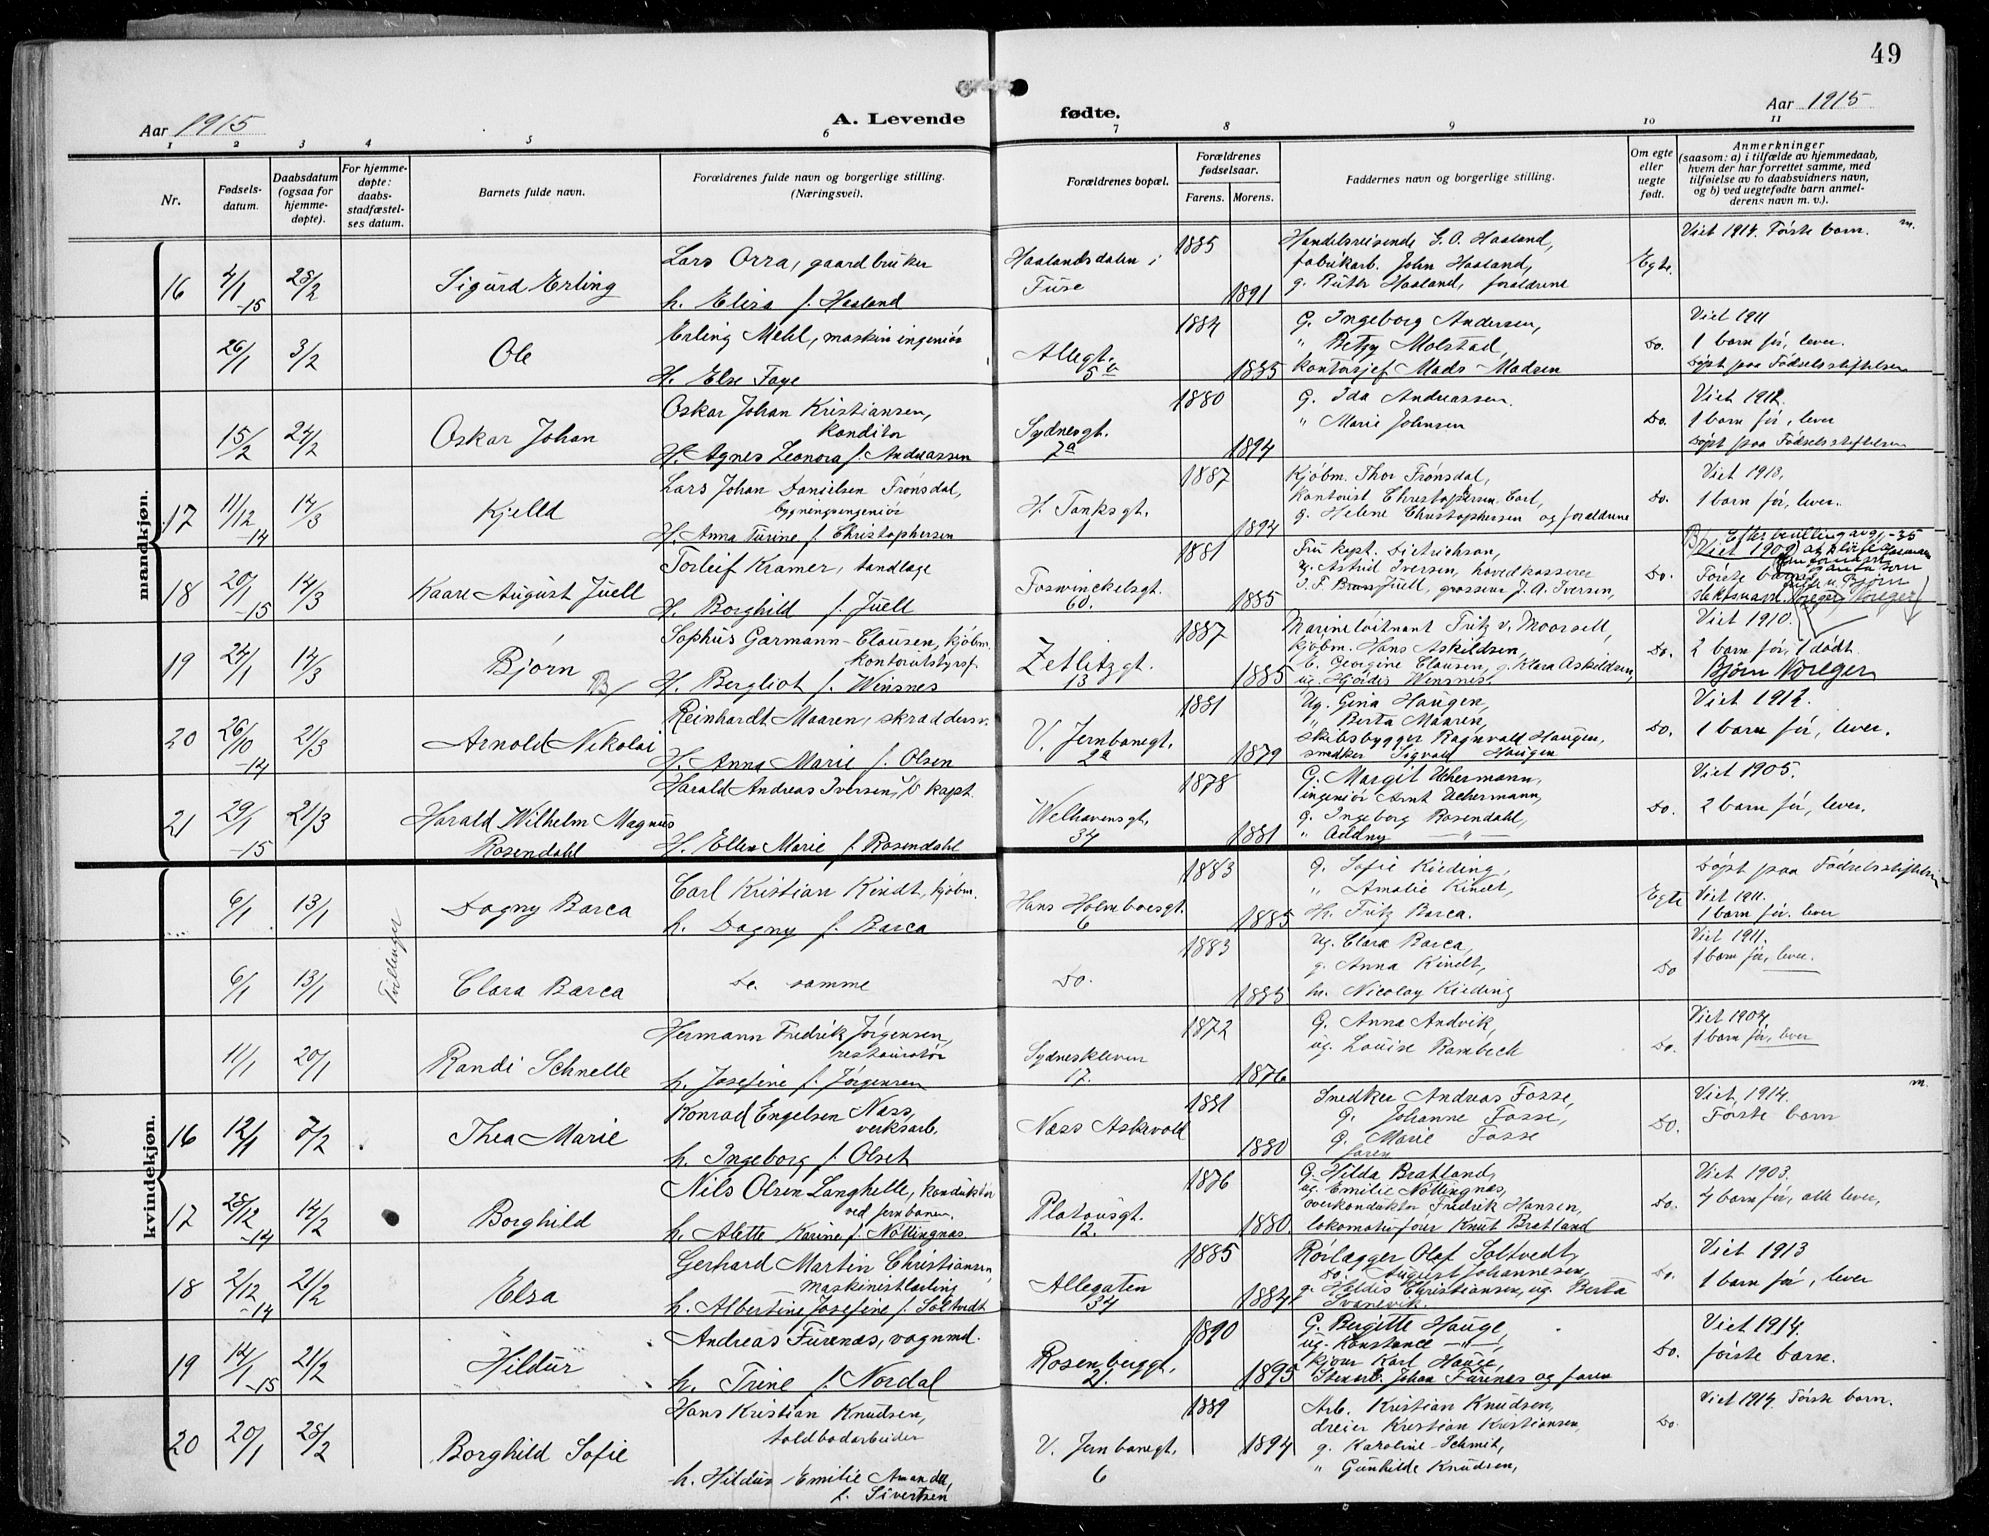 49
Aar 1915
A. Levende
fødte.
Aar 1915
1 2 3 4 5 6 7 8 9 10 11
Nr.
Fødsels-
datum.
Daabsdatum
(ogsaa for
hjemme-
døpte).
For hjemme-
døpte:
daabs-
stadfæstel-
ses datum.
Barnets fulde navn.
Forældrenes fulde navn og borgerlige stilling.
(Næringsvei).
Forældrenes bopæl.
Forældrenes
fødselsaar.
Farens. Morens.
Faddernes navn og borgerlige stilling.
Om egte
eller
uegte
født.
Anmerkninger
(saasom: a) i tilfælde av hjemmedaab,
hvem der har forrettet samme, med
tilføielse av to daabsvidners navn,
og b) ved uegtefødte barn anmel-
derens navn m. v.).
mandkjøn.
16 4/1 -15 28/2 Sigurd Erling
Lars Orra, gaardbruker
h. Elisa f. Haaland
Haalandsdalen i
Fuse
1885 1891
Handelsreisende G. O. Haaland,
fabrikarb. John Haaland,
g. Ruter Haaland, forældrene
Egte
Viet 1914. Første barn. m.
26/1 3/2 Ole
Erling Mehl, maskiningeniør
H. Else Faye
Allegt.
5a
1884 1885
G. Ingeborg Andersen,
" Betzy Molstad,
kontorsjef Mads Madsen
Do.
Viet 1911
1 barn før, lever.
Døpt paa Fødselsstiftelsen
15/2 24/2 Oskar Johan
Oskar Johan Kristiansen,
konditor
H. Agnes Leonora f. Andreassen
Sydnesgt.
7a
1880 1894
G. Ida Andreassen.
" Marie Johnsen
Do.
Viet 1912.
1 barn før, lever
Døpt paa Fødselsstiftelsen
17 11/12 -14 14/3 Kjelld
Lars Johan Danielsen Trønsdal,
bygningsingeniør
H. Anna Turine f. Christophersen
H. Tanksgt.
1
1887 1894
Kjøbm. Thor Trønsdal,
kontorist Christophersen Carl,
g. Helene Christophersen og forældrene
Do.
Viet 1913.
1 barn før, lever.
18 20/1 -15 14/3 Kaare August Juell
Torleif Kramer, tandlæge
H. Borghild f. Juell
Fosswinckelsgt.
60.
1881 1885
Fru kapt. Dietrichson,
ug. Astrid Iversen, hovedkasserer
J. F. Juell, grosserer J. A. Iversen,
Do.
Viet 1909
Første barn
19 24/1 14/3 Bjørn B/
Sophus Garmann-Clausen, kjøbm.
H. Bergliot f. Winsnes
Zetlitzgt.
13
1887 1885
Marineløitnant Fritz v. Moorsell,
kjøbm. Hans Askildsen,
E. Georgine Clausen, g. Klara Askildsen,
ug. Hjørdis Winsnes.
Do.
Viet 1910.
2 barn før, 1 dødt.
Bjørn Noreger
20 26/10 -14 21/3 Arnold Nikolai
Reinhardt Maaren, skræddersv.
H. Anna Marie f. Olsen
V. Jernbanegt.
2a
1881 1879
Ug. Gina Haugen,
" Berta Maaren,
skibsbygger Ragnvald Haugen,
snedker Sigvald Haugen
Do.
Viet 1912.
1 barn før, lever.
21 29/1 -15 21/3 Harald Wilhelm Magnus
Rosendahl
Harald Andreas Iversen, kapt.
H. Ellen Marie f. Rosendahl
Welhavensgt.
34
1878 1881
G. Margit Uchermann,
ingeniør Arnt Uchermann,
g. Ingeborg Rosendahl,
" Addny — " —
Do.
Viet 1905.
2 barn før, lever.
kvindekjøn.
6/1 13/1 Tvillinger Dagny Barca
Carl Kristian Kindt, kjøbm.
h. Dagny f. Barca
Hans Holmboesgt.
6
1883 1885
G. Sofie Kieding,
" Amalie Kindt,
Hr. Fritz Barca.
Egte
Døpt paa Fødselsstiftelsen
Viet 1911.
1 barn før. lever
6/1 13/1 Clara Barca
De samme
Do.
1883 1885
Ug. Clara Barca,
g. Anna Kindt,
hr. Nicolay Kieding
Do
Viet 1911.
1 barn før, lever.
11/1 20/1 Randi Schnelle
Hermann Fredrik Jørgensen,
restauratør
h. Josefine f. Jørgensen
Sydneskleven
17.
1872 1876
G. Anna Andvik,
ug. Louise Rambech
Do.
Viet 1904.
1 barn før, lever
16 12/1 7/2 Thea Marie
Konrad Engelsen Næss,
verksarb.
h. Ingeborg f. Olset
Næss Askevold
1881 1880
Snedker Andreas Fosse,
G. Johanne Fosse,
G. Marie Fosse
faren
Do.
Viet 1914. m.
Første barn
17 28/12 -14 14/2 Borghild
Nils Olsen Langhelle, konduktør
ved jernbanen.
h. Alette Karine f. Nøttingnæs.
Platousgt.
12.
1876 1880
G. Hilda Bratland,
ug. Emilie Nøttingnæs,
overkonduktør Fredrik Hansen,
lokomotivfører Knut Bratland
Do.
Viet 1903.
4 barn før, alle lever,
18 2/12 -14 21/2 Elsa
Gerhard Martin Christiansen,
maskinistlærling
h. Albertine Josefine f. Soltvedt
Allegaten
34
1885 1884
Rørlægger Olaf Soltvedt,
do. August Johannesen,
g. Hildis Christiansen, ug. Berta
Svanevik.
Do.
Viet 1913
1 barn før, lever
19 14/1 -15 21/2 Hildur
Andreas Furenæs, vognmd.
h. Trine f. Nordal
Rosenberggt.
21.
1890 1895
G. Bergitte Hauge,
ug. Konstance — " —,
kjører Karl Hauge,
Stenarb. Johan Furenæs og faren
Do.
Viet 1914.
første barn.
20 20/1 28/2 Borghild Sofie
Hans Kristian Knudsen,
toldbodarbeider
h. Hildur Emilie Amanda,
f. Sivertsen
V. Jernbanegt.
6
1889 1894
Arb. Kristian Knudsen,
dreier Kristian Kristiansen,
g. Karoline Schmit,
" Gunhilde Knudsen,
Do.
Viet 1914. Første barn.